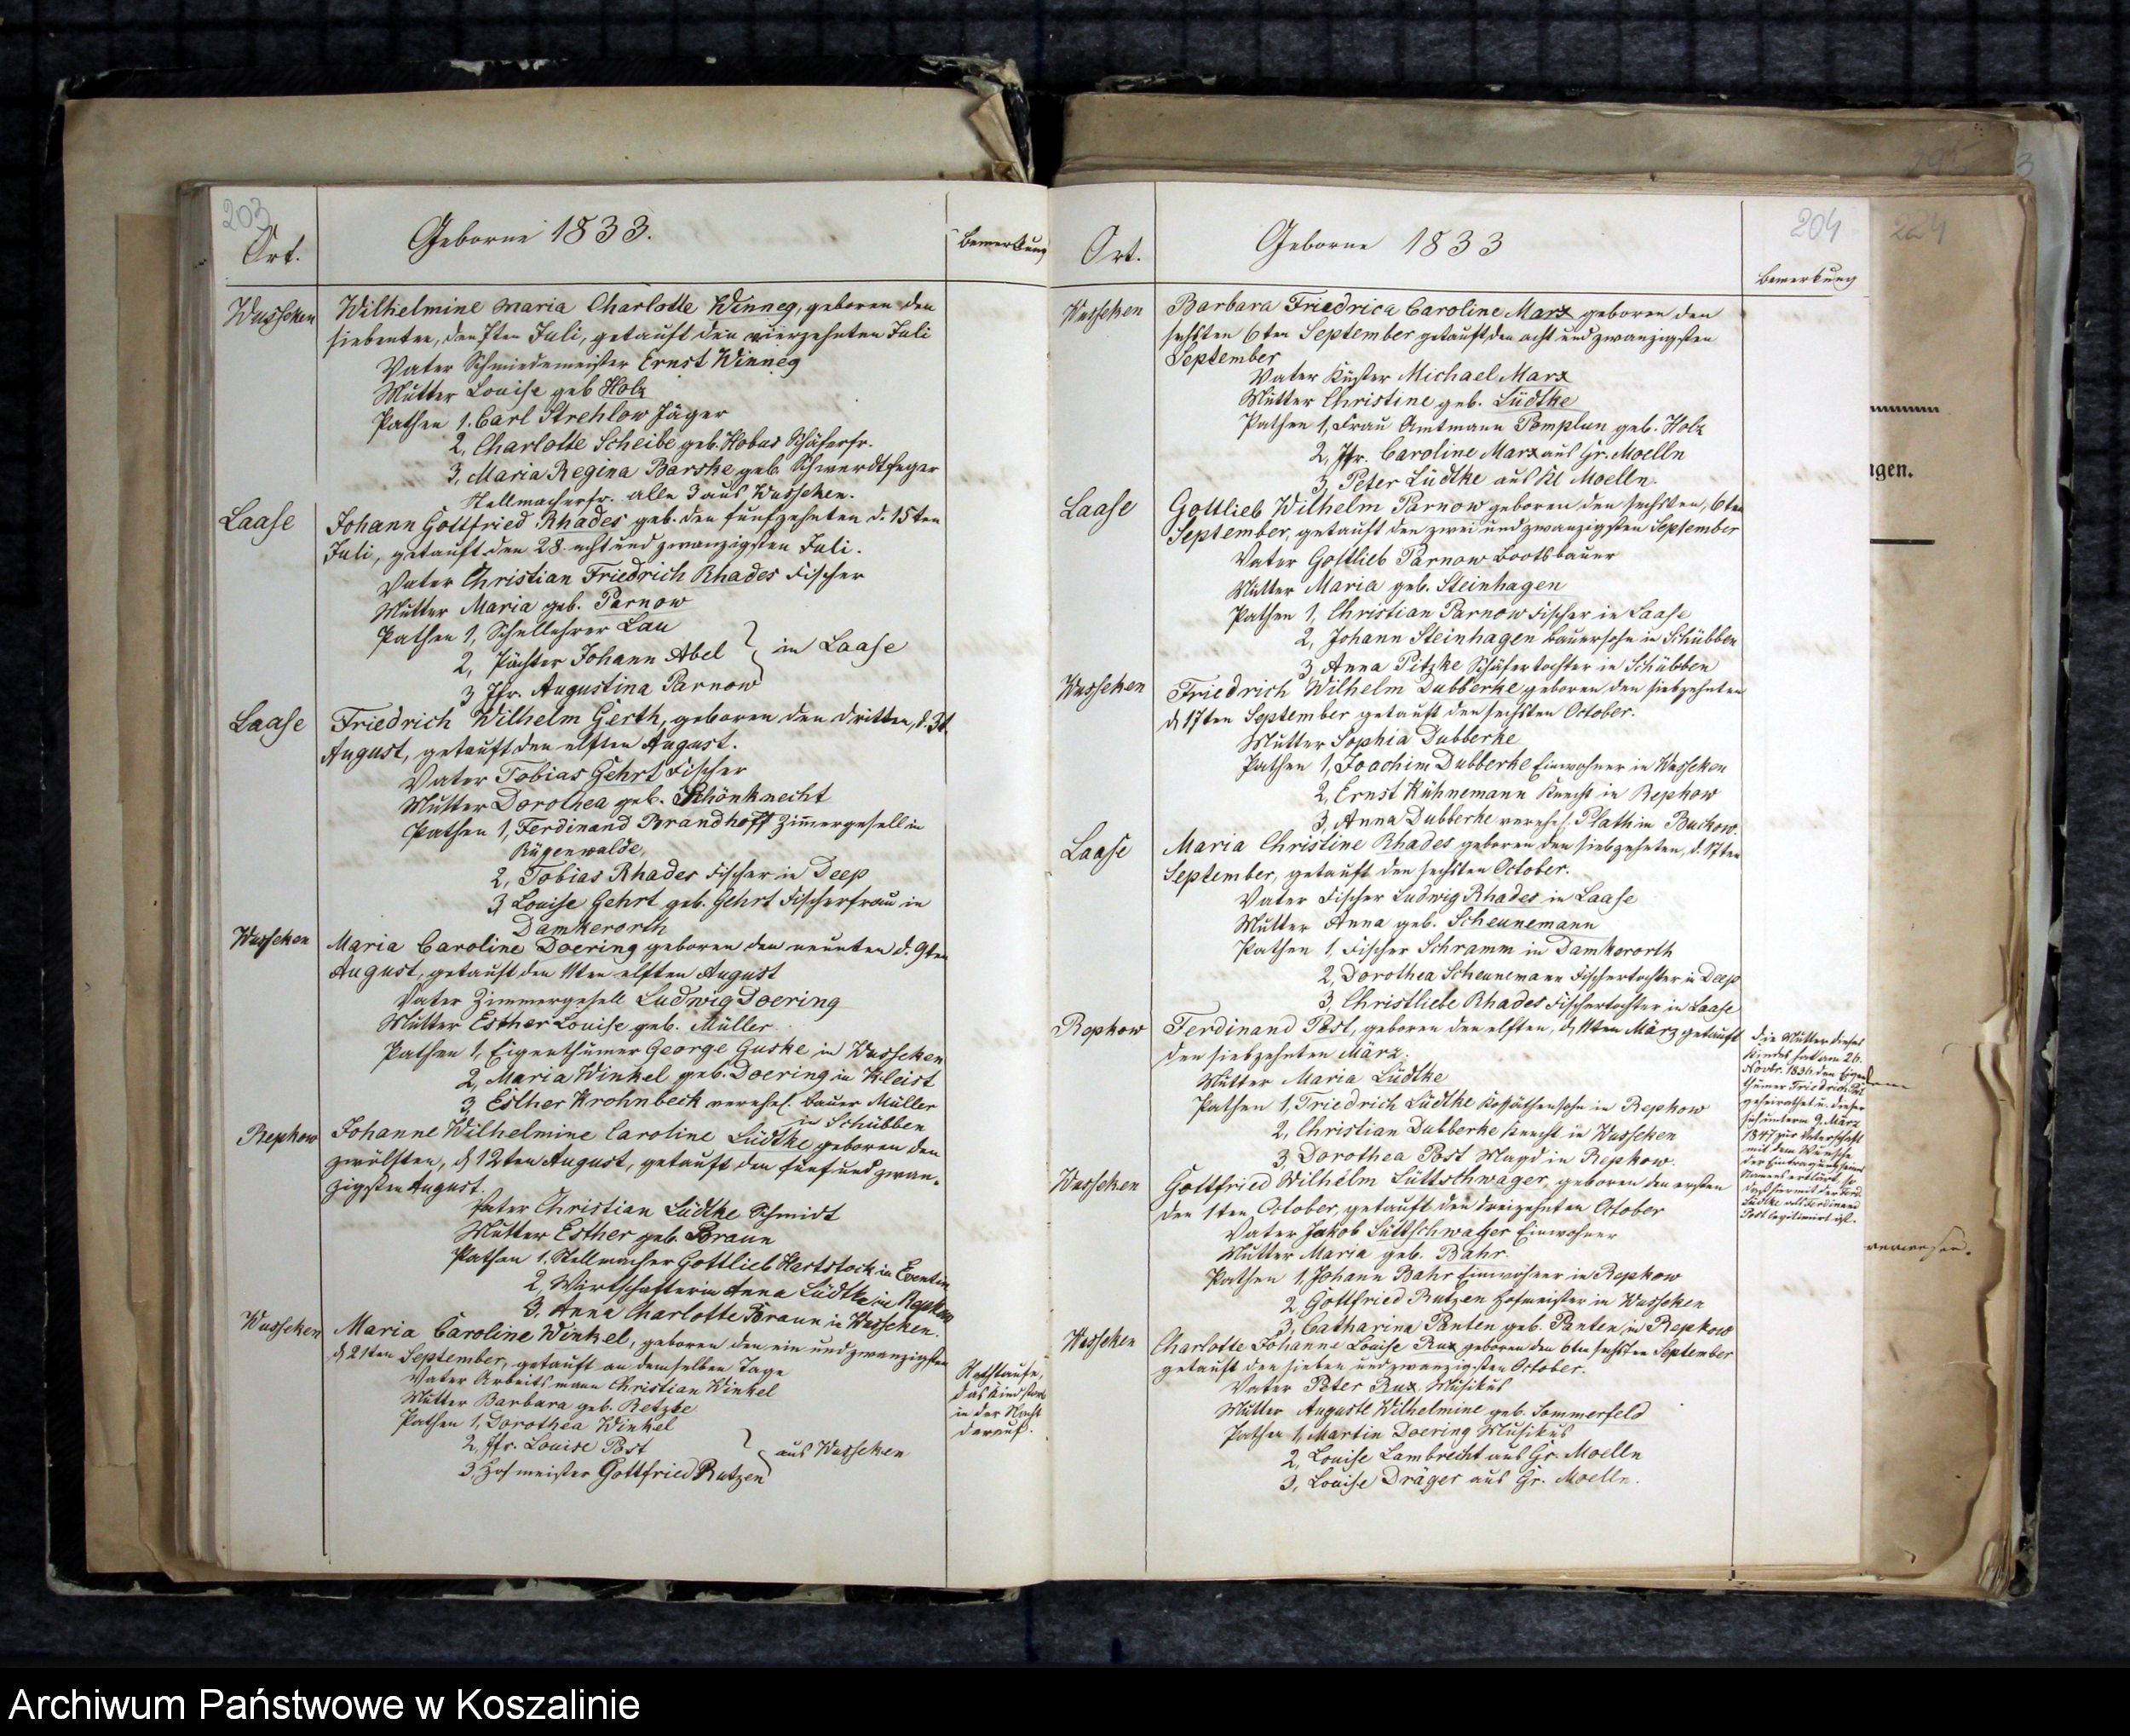 203
Ort.
Geborne 1833.
Bemerkung
Wusseken
Wilhelmine Maria Charlotte Winneg, geboren den
siebenten, den 7ten Juli, getauft den vierzehnten Juli
Vater Schmiedemeister Ernst Winneg
Mutter Louise geb Holz
Pathen 1. Carl Strehlow Jäger
2, Charlotte Scheibe geb. Hobus Schäferfr.
3, Maria Regina Barske geb. Schwerdtfeger
Stellmacherfr. alle 3 aus Wusseken.
Laase
Johann Gottfried Rhades geb. den funfzehnten d. 15ten
Juli, getauft den 28. acht und zwanzigsten Juli.
Vater Christian Friedrich Rhades Fischer
Mutter Maria geb. Parnow
Pathen 1, Schullehrer Lau
2, Pächter Johann Abel
in Laase
3 Jfr. Augustina Parnow
Laase
Friedrich Wilhelm Gerth, geboren den dritten, d. 3t.
August, getauft den elften August.
Vater Tobias Gehrt Fischer
Mutter Dorothea geb. Schönknecht
Pathen 1, Ferdinand Brandhoff Zimmergesell in
Rügenwalde,
2, Tobias Rhades Fischer in Deep
3, Louise Gehrt geb. Gehrt Fischerfrau in
Damkerorth
Wusseken
Maria Caroline Doering geboren den neunten d. 9ten
August, getauft den 11ten elften August
Vater Zimmergesell Ludwig Doering
Mutter Esther Louise geb. Müller
Pathen 1, Eigenthümer George Guske in Wusseken
2, Maria Winkel geb. Doering in Kleist
3, Esther Krohnbeck verehel. Bauer Müller
in Schübben
Repkow
Johanne Wilhelmine Caroline Lüdtke geboren den
zwölften, d 12ten August, getauft den fünf und zwan-
zigsten August.
Vater Christian Lüdtke Schmidt
Mutter Esther geb. Braun
Pathen 1. Stellmacher Gottlieb Hartstock in Eventin
2, Wirthschafterin Anna Lüdtke in Repkow
3, Anna Charlotte Braun in Wusseken.
Wusseken
Maria Caroline Winkel, geboren den ein und zwanzigsten
d 21ten September, getauft an demselben Tage
Vater Arbeitsmann Christian Winkel
Mutter Barbara geb. Retzke
Pathen 1, Dorothea Winkel
2, Jfr. Louise Post
aus Wusseken
3, Hofmeister Gottfried Rutzen
Nothtaufe,
das Kind starb
in der Nacht
darauf.
204
Ort.
Geborne 1833
Bemerkung
Wusseken
Barbara Friedrica Caroline Marx geboren den
sechsten 6ten September getauft den acht und zwanzigsten
September
Vater Küster Michael Marx
Mutter Christine geb. Lüdtke
Pathen 1, Frau Amtmann Pomplun geb. Holz
2, Jfr. Caroline Marx aus Gr. Moelln
3, Peter Lüdtke aus Kl Moelln.
Laase
Gottlieb Wilhelm Parnow geboren den sechsten, 6ten
September, getauft den zwei und zwanzigsten September
Vater Gottlieb Parnow Bootsbauer
Mutter Maria geb. Steinhagen
Pathen 1, Christian Parnow Fischer in Laase
2, Johann Steinhagen Bauersohn in Schübben
3, Anna Pitzke Schäfertochter in Schübben
Wusseken
Friedrich Wilhelm Dubberke geboren den siebzehnten
d 17ten September getauft den sechsten October.
Mutter Sophia Dubberke
Pathen 1, Joachim Dubberke Einwohner in Wusseken
2, Ernst Kühnemann Knecht in Repkow
3, Anna Dubberke verehel. Plath in Buckow.
Laase
Maria Christine Rhades geboren den siebzehnten, d. 17ten
September, getauft den sechsten October.
Vater Fischer Ludwig Rhades in Laase
Mutter Anna geb. Scheunemann
Pathen 1, Fischer Schramm in Damkerorth
2, Dorothea Scheunemann Fischertochter in Deep
3, Christliebe Rhades Fischertochter in Laase
Repkow
Ferdinand Post, geboren den elften, d 11ten März getauft
den siebzehnten März.
Mutter Maria Lüdtke
Pathen 1, Friedrich Lüdtke Kossäthensohn in Repkow
2, Christian Dubberke Knecht in Wusseken
3, Dorothea Post Magd in Repkow.
Die Mutter dieses
Kindes hat am 26.
Novbr. 1836 den Eigen
thümer Friedrich Post
geheirathet u. dieser
hat unterm 9. März
1847 zur Vaterschaft
mit dem Wunsche
der Eintragung seines
Namens erklärt, so
daß hiermit der Ferd.
Lüdtke als Ferdinand
Post legitimirt ist.
Wusseken
Gottfried Wilhelm Lüttschwager, geboren den ersten
den 1ten October, getauft den dreizehnten October
Vater Jakob Lüttschwager Einwohner
Mutter Maria geb. Bahr
Pathen 1, Johann Bahr Einwohner in Repkow
2, Gottfried Rutzen Hofmeister in Wusseken
3, Catharina Panten geb. Panten in Repkow
Wusseken
Charlotte Johanne Louise Rux geboren den 6ten sechsten September
getauft den sieben und zwanzigsten October.
Vater Peter Rux Musikus
Mutter Auguste Wilhelmine geb. Sommerfeld
Pathen 1, Martin Doering Musikus
2, Louise Lambrecht aus Gr. Moelln
3, Louise Dräger aus Gr. Moelln.
224
ngen.
Archiwum Państwowe w Koszalinie